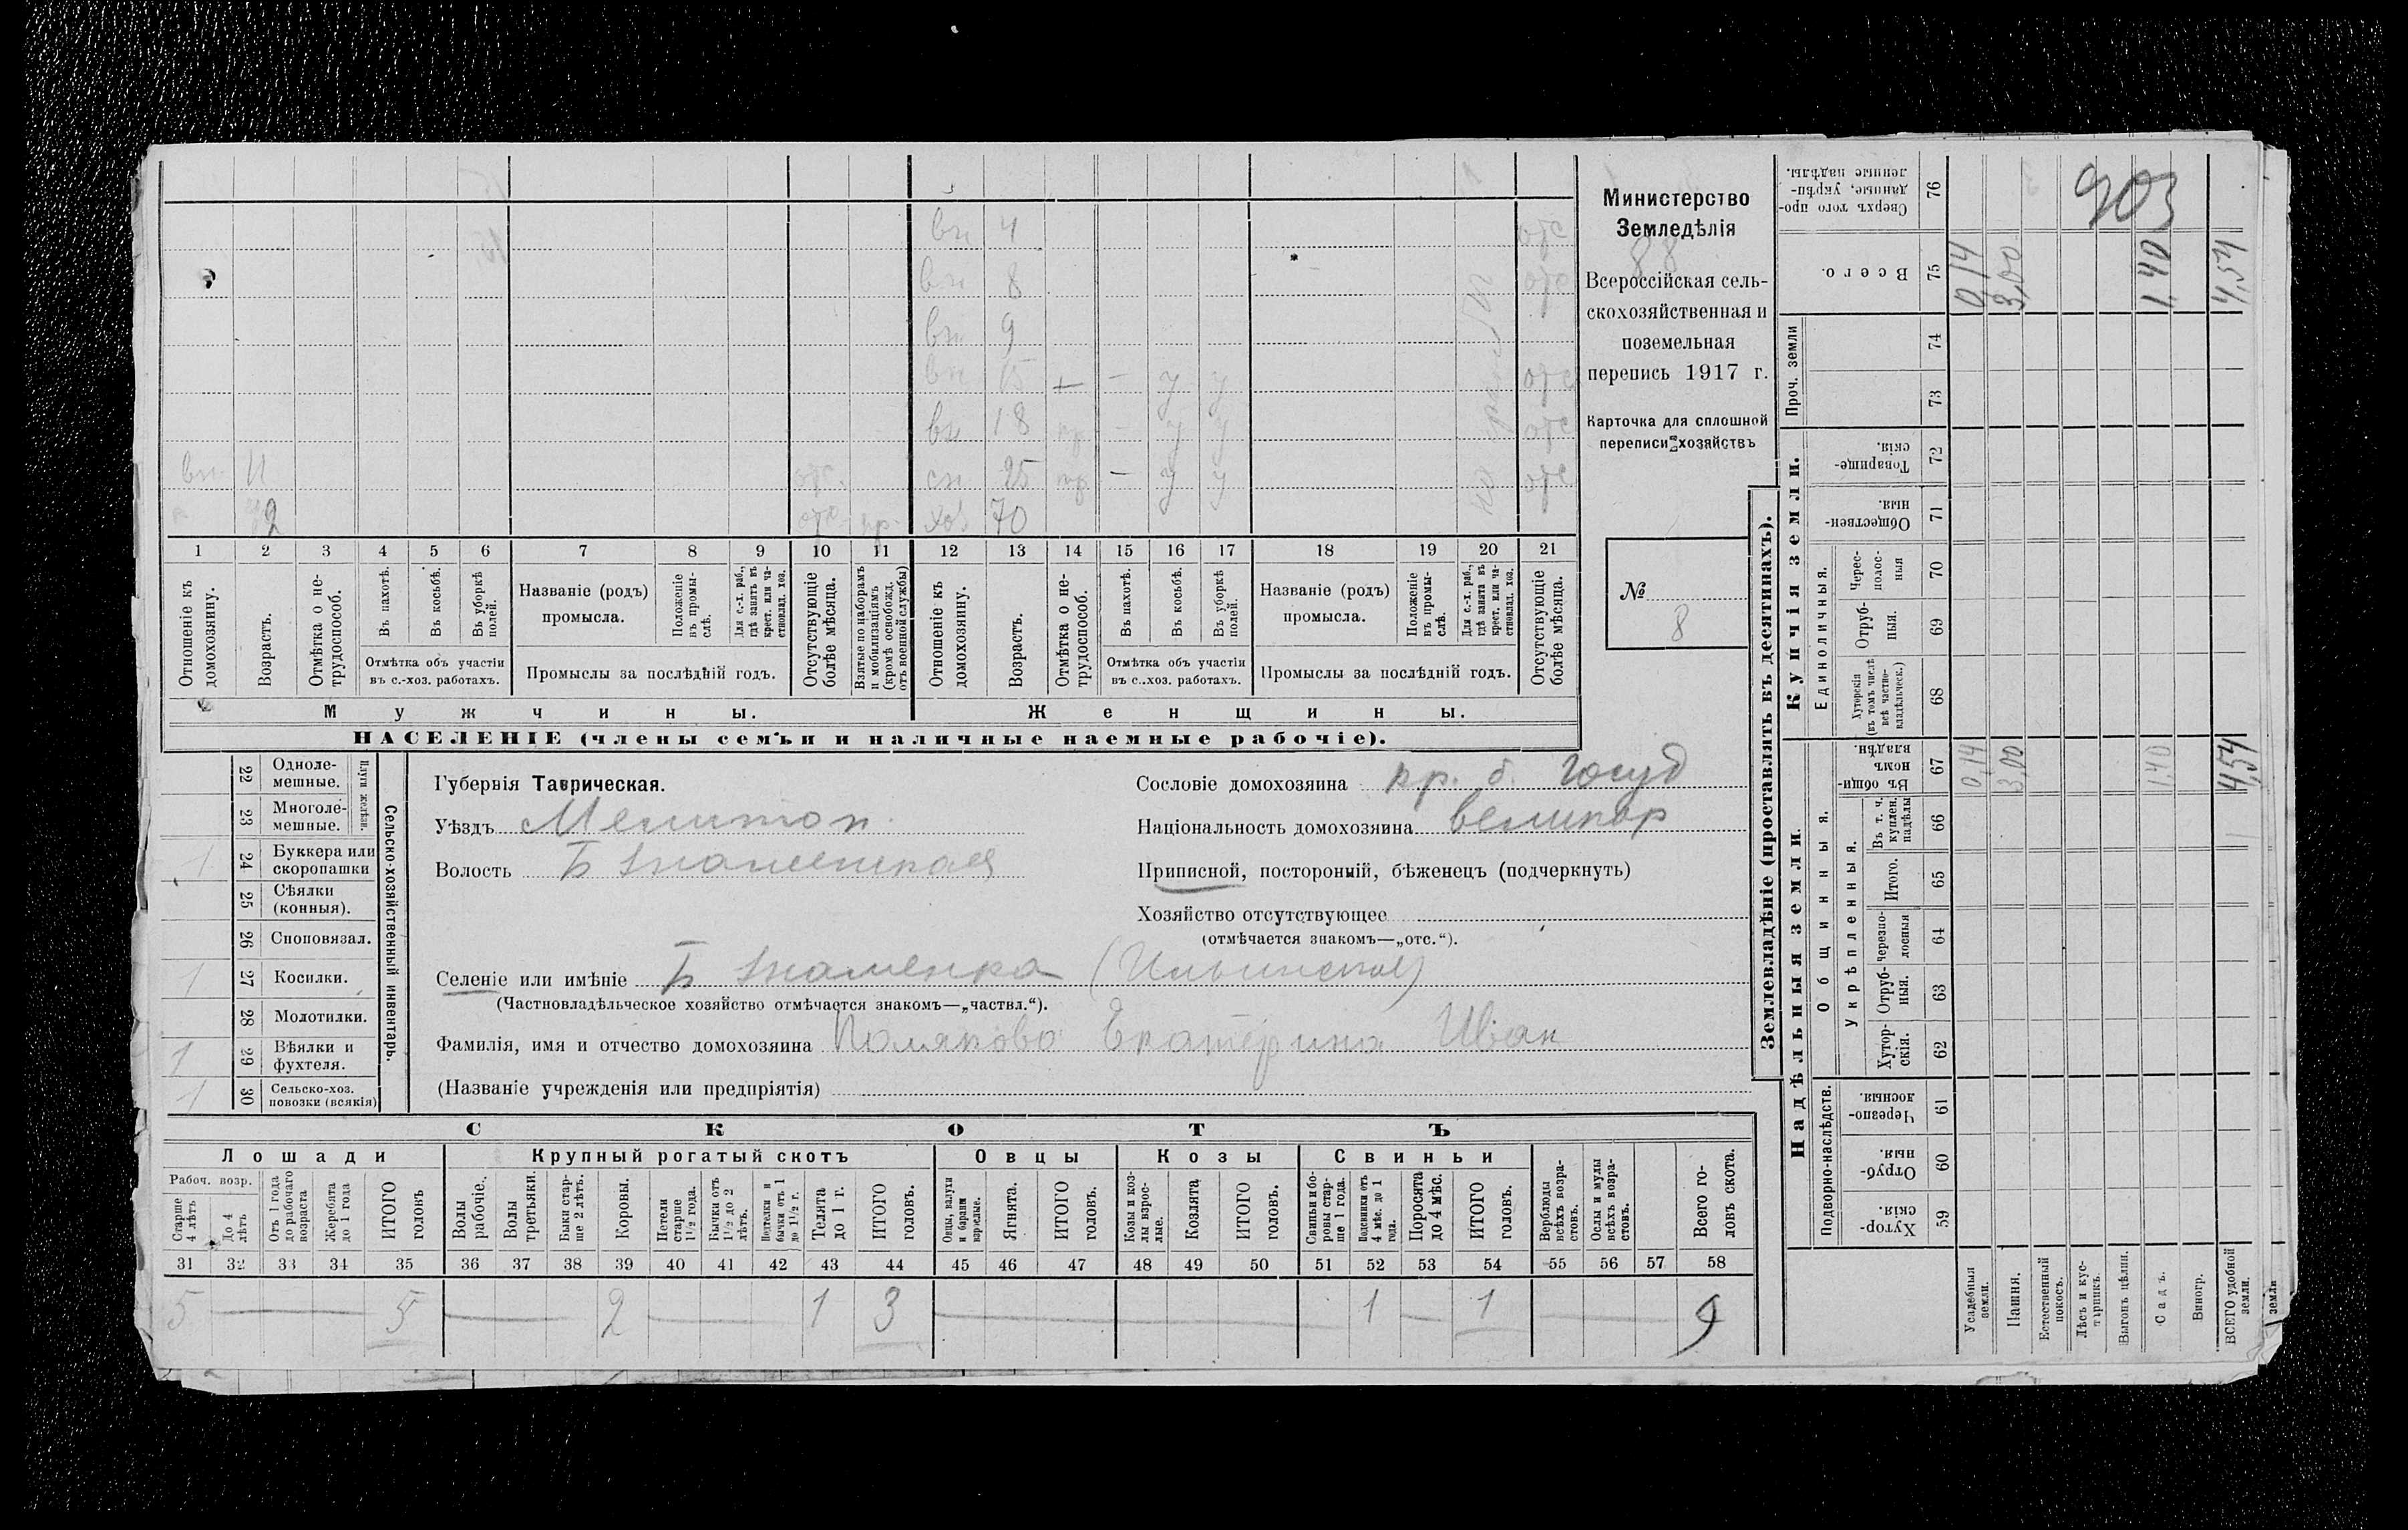 вн 4 отс
вн 8 отс
вн 9
вн 15 + — у у отс
вн 18 нр — у у отс
вн 11 отс. сн 25 нр — у у отс
отс. хоз 70
1 2 3 4 5 6 7 8 9 10 11 12 13 14 15 16 17 18 19 20 21
Отношеніе къ домохозяину.
Возрастъ.
Отмѣтка о нетрудоспособ.
Въ пахотѣ.
Въ косьбѣ.
Въ уборкѣ полей.
Отмѣтка объ участіи въ с.-хоз. работахъ.
Названіе (родъ) промысла.
Положеніе въ промыслѣ.
Для с.-х. раб., гдѣ занять въ крест. или частновлад. хоз.
Промыслы за послѣдній годъ.
Отсутствующіе болѣе мѣсяца.
Взятые по наборамъ и мобилизаціямъ (кромѣ освобожд. отъ военной службы)
Отношеніе къ домохозяину.
Возрастъ.
Отмѣтка о нетрудоспособ.
Въ пахотѣ.
Въ косьбѣ.
Въ уборкѣ полей.
Отмѣтка объ участіи въ с..хоз. работахъ.
Названіе (родъ) промысла.
Положеніе въ промыслѣ.
Для с.-х. раб., гдѣ занята въ крест. или частновлад. хоз.
Промыслы за послѣдній годъ.
Отсутствующіе болѣе мѣсяца.
Мужчины.
Женщины.
НАСЕЛЕНІЕ (члены семьи и наличные наемные рабочіе).
Министерство
Земледѣлія
88
Всероссійская сель-
скохозяйственная и
поземельная
перепись 1917 г.
Карточка для сплошной
переписи хозяйствъ
№
8
22 Одноле-мешные.
23 Многоле-мешные.
Плуги желѣзн.
1 24 Буккера или скоропашки
25 Сѣялки (конныя).
26 Сноповязал.
1 27 Косилки.
28 Молотилки.
1 29 Вѣялки и фухтеля.
1 30 Сельско-хоз. повозки (всякія)
Сельско-хозяйственный инвентарь.
Губернія Таврическая.
Уѣздъ Мелитоп.
Волость Б Знаменская
Сословіе домохозяина кр. б. Госуд
Національность домохозяина великор
Приписной, посторонній, бѣженецъ (подчеркнуть)
Хозяйство отсутствующее
(отмѣчается знакомъ—„отс.“).
Селеніе или имѣніе Б Знаменка (Ильинское)
(Частновладѣльческое хозяйство отмѣчается знакомъ—„частвл.“).
Фамилія, имя и отчество домохозяина Полякова Екатерина Иван
(Названіе учрежденія или предпріятія)
СКОТЪ
Лошади
Крупный рогатый скотъ
Овцы
Козы
Свиньи
Рабоч. возр.
Старше 4 лѣтъ
До 4 лѣтъ
Отъ 1 года до рабочаго возраста
Жеребята до 1 года
ИТОГО головъ
Волы рабочіе.
Волы третьяки.
Быки старше 2 лѣтъ.
Коровы.
Нетели старше 1½ года.
Бычки отъ 1½ до 2 лѣтъ.
Нетелки и бычки отъ 1 до 1½ г.
Телята до 1 г.
ИТОГО головъ.
Овцы, валухи и бараны взрослые.
Ягнята.
ИТОГО головъ.
Козы и козлы взрослые.
Козлята
ИТОГО головъ.
Свиньи и боровы старше 1 года.
Подсвинки отъ 4 мѣс. до 1 года.
Поросята до 4 мѣс.
ИТОГО головъ.
Верблюды всѣхъ возрастовъ.
Ослы и мулы всѣхъ возрастовъ.
Всего головъ скота.
31 32 33 34 35 36 37 38 39 40 41 42 43 44 45 46 47 48 49 50 51 52 53 54 55 56 57 58
5 — 5 — 2 — 1 3 — 1 — 1 — 9
Землевладѣніе (проставлять въ десятинахъ).
Купчія земли.
Надѣльныя земли.
Сверхъ того проданные, укрѣпленные надѣлы. 76
903
Всего. 75 0,14 3,00 1,40 4,54
Проч. земли 74 73
Товарищескія. 72
Общественныя. 71
Единоличныя.
Чересполосныя 70
Отрубныя. 69
Хуторскія (въ томъ числѣ всѣ частновладѣльческ.) 68
Общинныя.
Въ общинномъ владѣн. 67 0,14 3,00 1,40 4,54
Укрѣпленныя.
Въ т. ч. куплен. надѣлы 66
Итого. 65
Черезполосныя 64
Отрубныя. 63
Хуторскія. 62
Подворно-наслѣдств.
Черезполосныя. 61
Отрубныя. 60
Хуторскія. 59
Усадебныя земли.
Пашня.
Естественный покосъ.
Лѣсъ и кустарникъ.
Выгонъ цѣлин.
Садъ.
Виногр.
ВСЕГО удобной земли.
земли